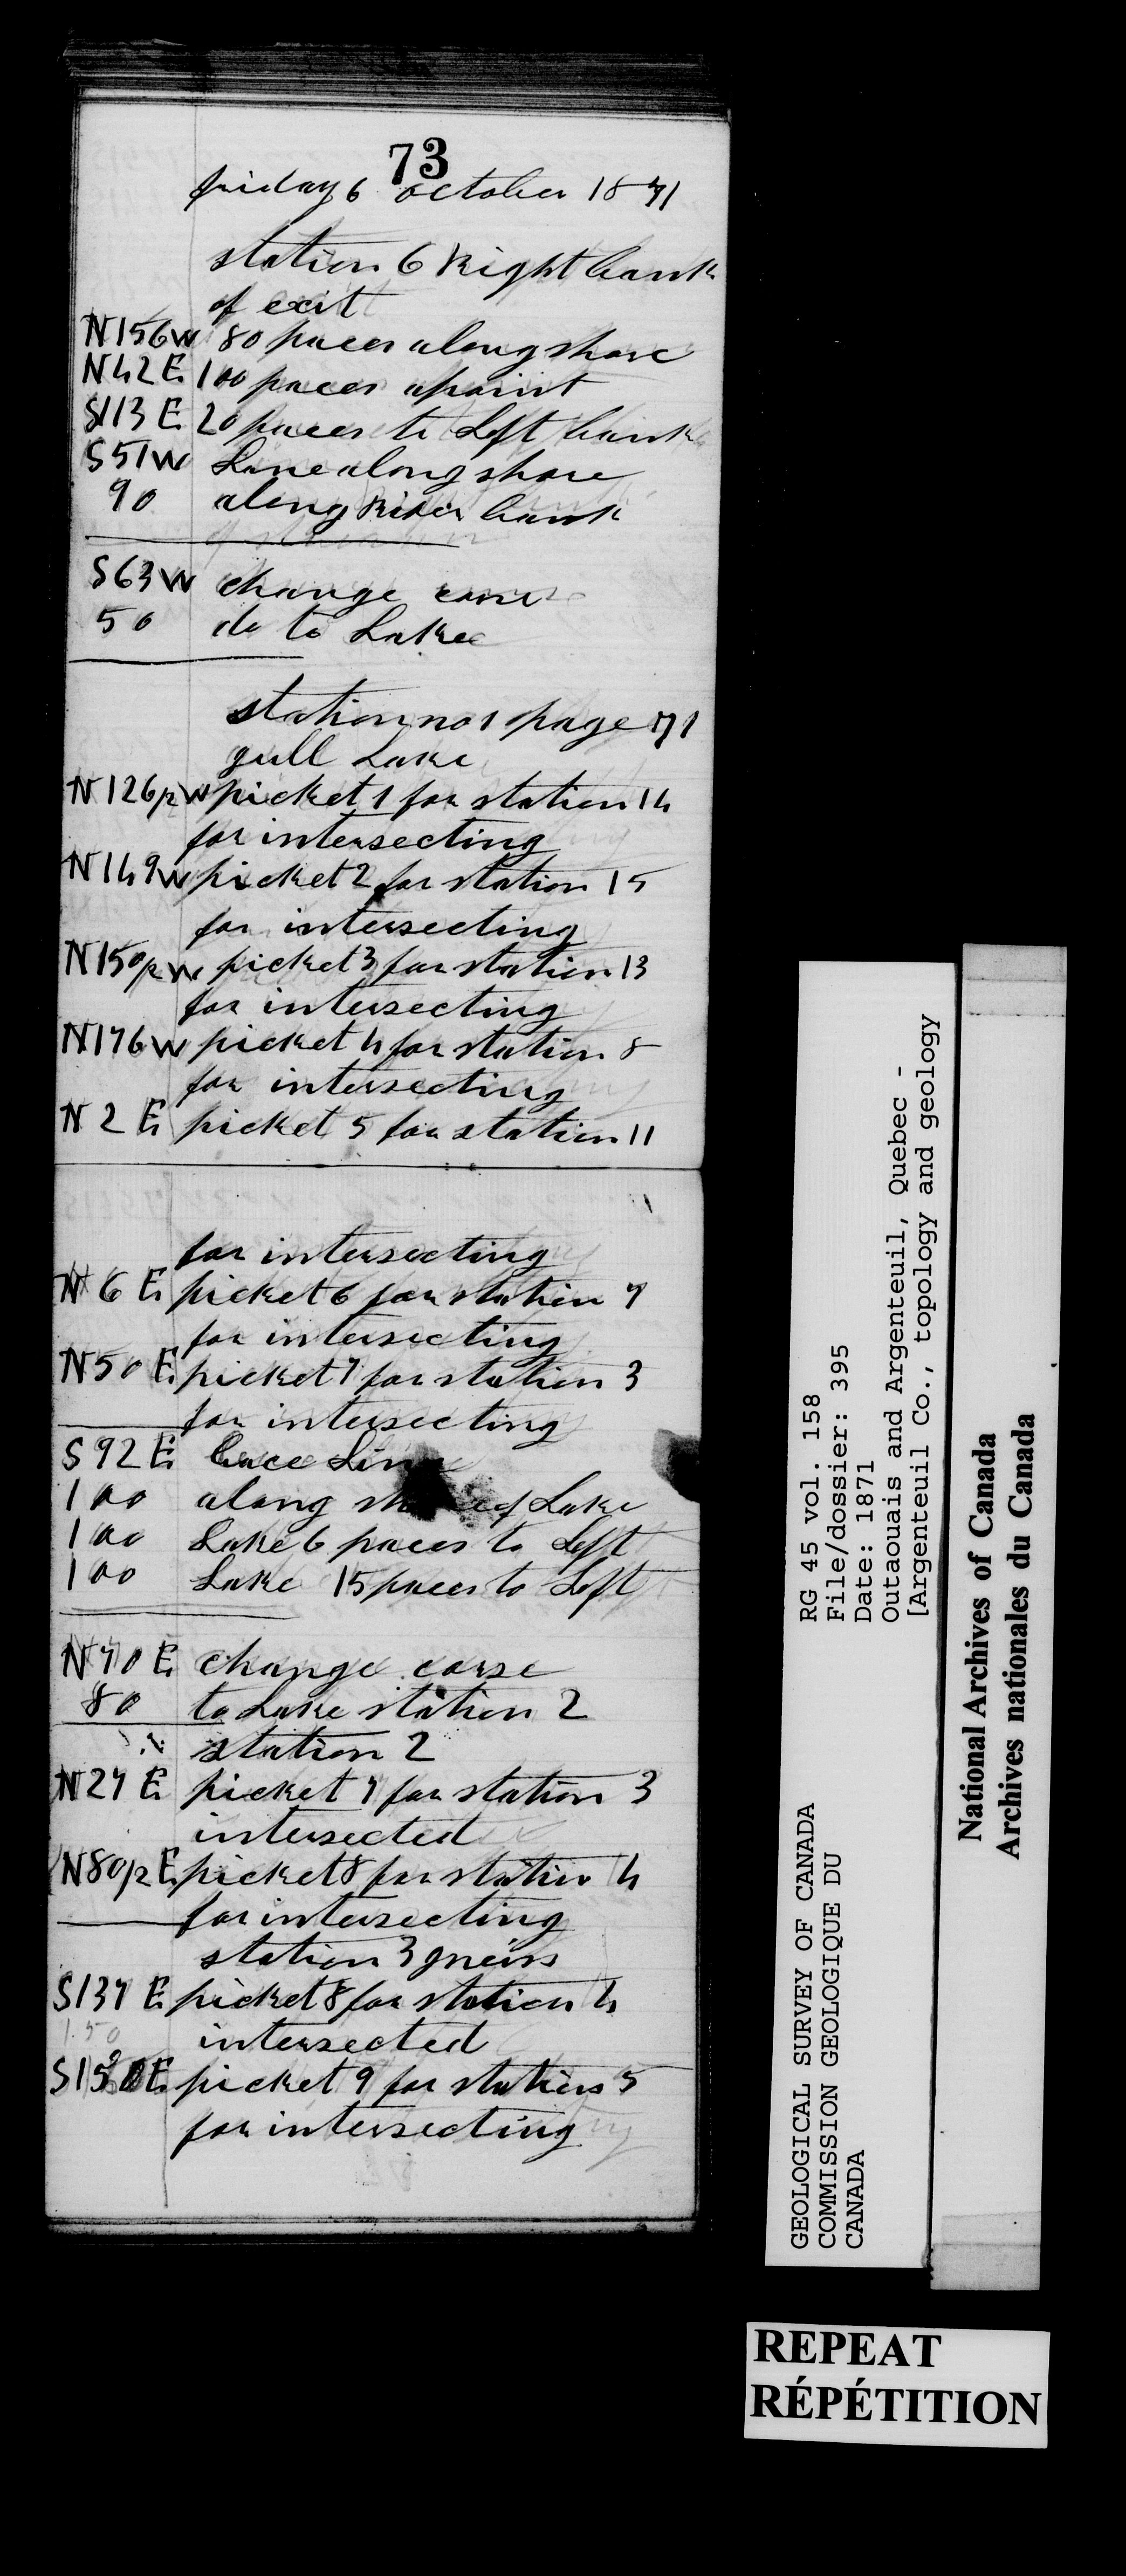 73
friday 6 october 1871
station 6 Right bank
of exit
N156W 80 paces along shore
N42E 100 paces apoint
S113E 20 paces to Left bank
S51W Line along shore
90 along River bank
S63W change corse
50 do to Lake
station no 1 page 71
gull Lake
N126/2W picket 1 for station 14
for intersecting
N149W picket 2 for station 15
for intersecting
N150/2W picket 3 for station 13
for intersecting
N176W picket 4 for station 8
for intersecting
N 2 E picket 5 for station 11
for intersecting
N 6 E picket 6 for station 7
for intersecting
N50 E picket 7 for station 3
for intersecting
S 92 E bace Line
100 along shore of Lake
100 Lake 6 paces to Left
100 Lake 15 paces to Left
N70 E change corse
80 to Lake station 2
station 2
N27 E picket 7 for station 3
intersected
N80/2 E picket 8 for station 4
for intersecting
station 3 gneiss
S137 E picket 8 for station 4
150 intersected
S150E picket 9 for station 5
for intersecting
RG 45 vol. 158
File/dossier: 395
Date: 1871
Outaouais and Argenteuil, Quebec -
[Argenteuil Co., topology and geology
GEOLOGICAL SURVEY OF CANADA
COMMISSION GEOLOGIQUE DU
CANADA
National Archives of Canada
Archives nationales du Canada
REPEAT
RÉPÉTITION